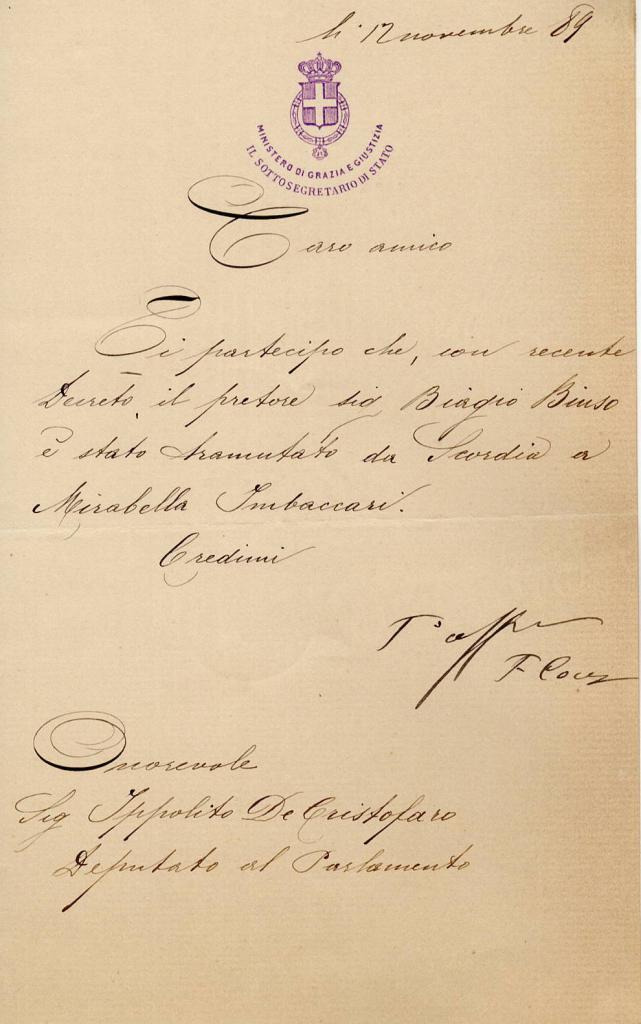 li 17 novembre 89
MINISTERO DI GRAZIA E GIUSTIZIA
IL SOTTOSEGRETARIO DI STATO
Caro amico
Ti partecipo che, con recente
Decreto, il pretore sig Biagio Binso
è stato tramutato da Scordia a
Mirabella Imbaccari.
Credimi
Onorevole
Sig Ippolito De Cristofaro
Deputato al Parlamento